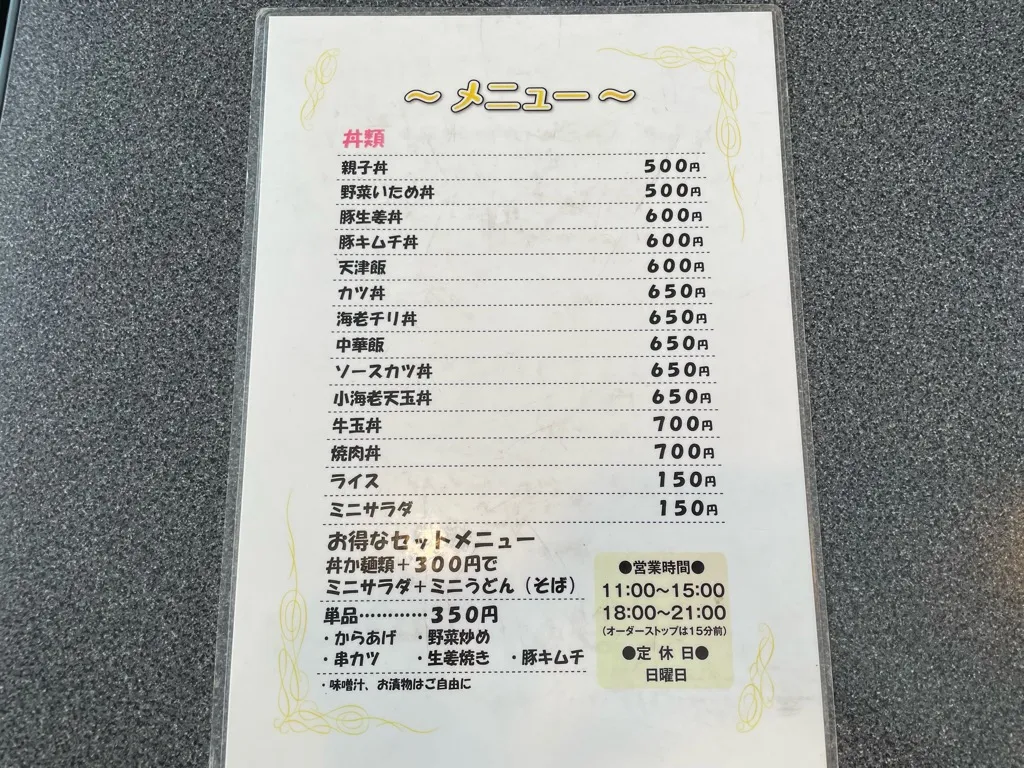 ～ メニュー ～
丼類
親子丼 500円
野菜いため丼 500円
豚生姜丼 600円
豚キムチ丼 600円
天津飯 600円
カツ丼 650円
海老チリ丼 650円
中華飯 650円
ソースカツ丼 650円
小海老天玉丼 650円
牛玉丼 700円
焼肉丼 700円
ライス 150円
ミニサラダ 150円
お得なセットメニュー
丼か麺類＋300円で
ミニサラダ＋ミニうどん（そば）
単品…………350円
・からあげ ・野菜炒め
・串カツ ・生姜焼き ・豚キムチ
・味噌汁、お漬物はご自由に
●営業時間●
11:00～15:00
18:00～21:00
（オーダーストップは15分前）
●定 休 日●
日曜日